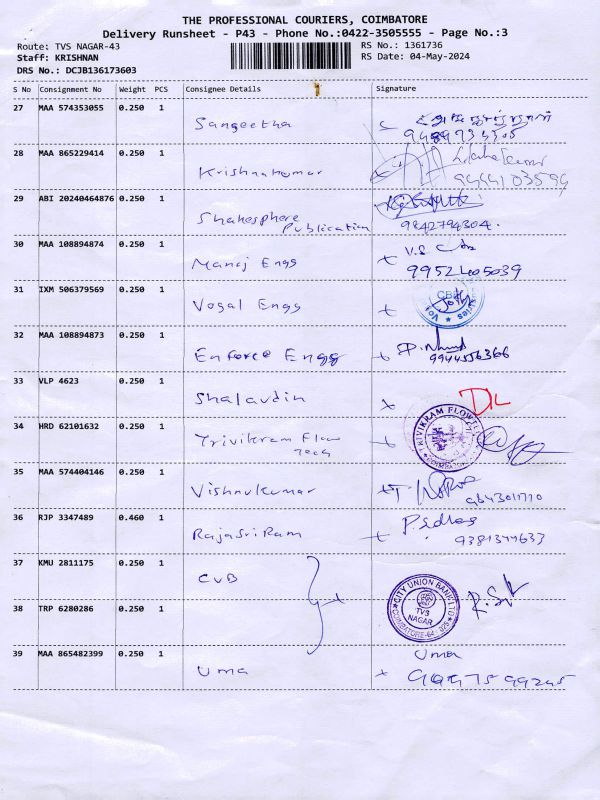 THE PROFESSIONAL COURIERS, COIMBATORE
Delivery Runsheet - P43 - Phone No.:0422-3505555 - Page No.:3
Route: TVS NAGAR-43 RS No.: 1361736
Staff: KRISHNAN RS Date: 04-May-2024
DRS No.: DCJB136173603
S No Consignment No Weight PCS Consignee Details Signature
27 MAA 574353055 0.250 1
Sangeetha
28 MAA 865229414 0.250 1
Krishnakumar
9444103594
29 ABI 20240464876 0.250 1
Shakesphere
Publication 9842794304.
30 MAA 108894874 0.250 1 V.S
Manoj Engg 9952405039
31 IXM 506379569 0.250 1
Vogal Engg
32 MAA 108894873 0.250 1
Enforce Engg 9944556366
33 VLP 4623 0.250 1
Shalavdin DL
34 HRD 62101632 0.250 1 KIVIKRAM FLOW
Trivikram Flow COIMBATORE
Tech
35 MAA 574404146 0.250 1
Vishnukumar
36 RJP 3347489 0.460 1
RajaSriRam 9381344633
37 KMU 2811175 0.250 1
CUB CITY UNION BANK LTD
38 TRP 6280286 0.250 1 TVS
NAGAR
COIMBATORE-64
39 MAA 865482399 0.250 1 Uma
Uma